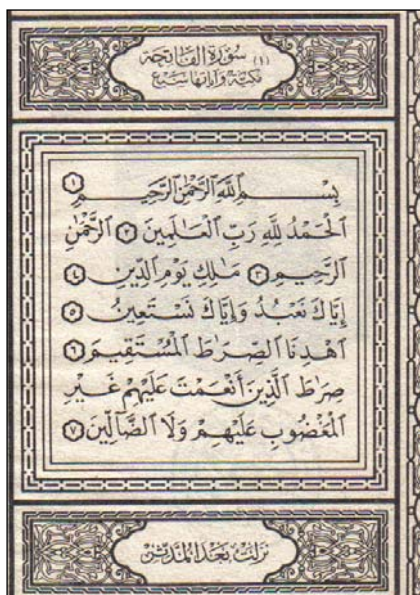 (١) سُورَة الفَاتِحَة
مَكيَّة وَآيَاتُهَا سَبْع
بِسْمِ ٱللَّهِ ٱلرَّحْمَٰنِ ٱلرَّحِيمِ ١
ٱلْحَمْدُ لِلَّهِ رَبِّ ٱلْعَٰلَمِينَ ٢ ٱلرَّحْمَٰنِ
ٱلرَّحِيمِ ٣ مَٰلِكِ يَوْمِ ٱلدِّينِ ٤
إِيَّاكَ نَعْبُدُ وَإِيَّاكَ نَسْتَعِينُ ٥
ٱهْدِنَا ٱلصِّرَٰطَ ٱلْمُسْتَقِيمَ ٦
صِرَٰطَ ٱلَّذِينَ أَنْعَمْتَ عَلَيْهِمْ غَيْرِ
ٱلْمَغْضُوبِ عَلَيْهِمْ وَلَا ٱلضَّآلِّينَ ٧
نزلت بعد المدثر